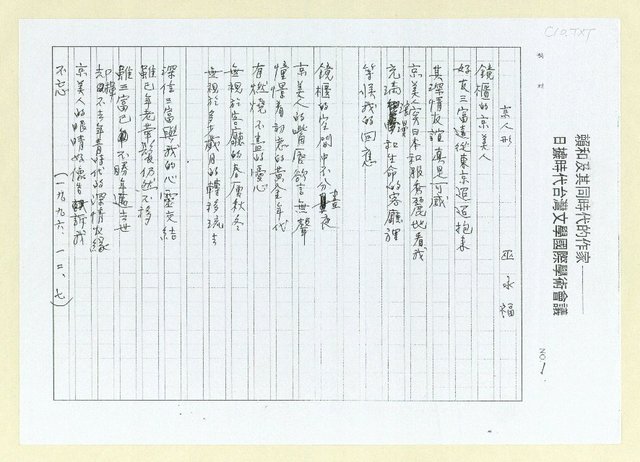 C10.TXT
賴和及其同時代的作家——
日據時代台灣文學國際學術會議
NO 1
京人形
巫永福
鏡櫃的京美人
好友三富遠從東京迢迢抱來
其深情友誼真是可感
京美人穿日本和服秀麗地看我
充滿 和生命的客廳裡
等候我的回應
鏡櫃的空間中不分晝夜
京美人的嘴唇欲言無聲
憧憬着初戀的黃金年代
有燃燒不盡的憂心
無視於客廳的春夏秋冬
無視於多少歲月的轉移流去
深信三富與我的心靈交結
雖已年老常髮仍然不移
雖三富已不勝年邁去世
卻揮不去年青時代的深情友緣
京美人的眼睛好像告訴我
不忘
（一九九六、一二、七）